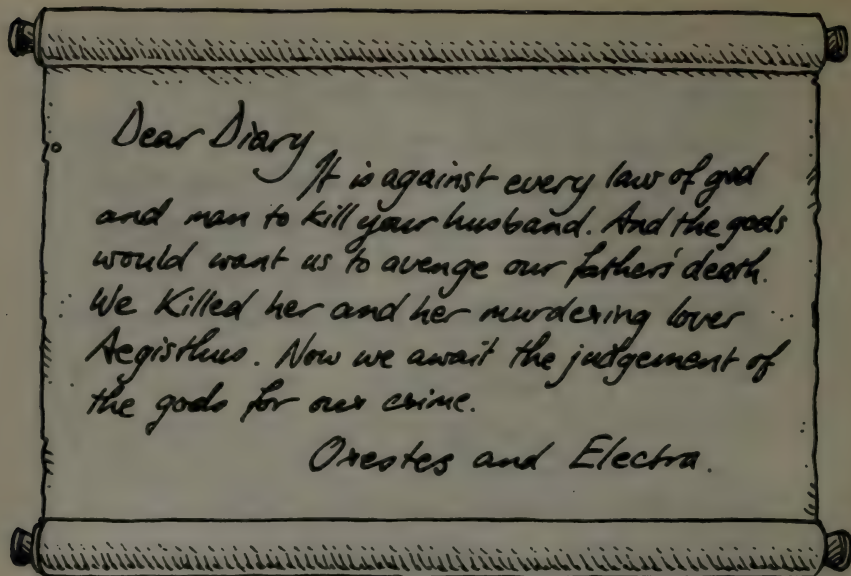 Dear Diary
It is against every law of god
and man to kill your husband. And the gods
would want us to avenge our fathers' death.
We Killed her and her murdering lover
Aegisthus. Now we await the judgement of
the gods for our crime.
Orestes and Electra.